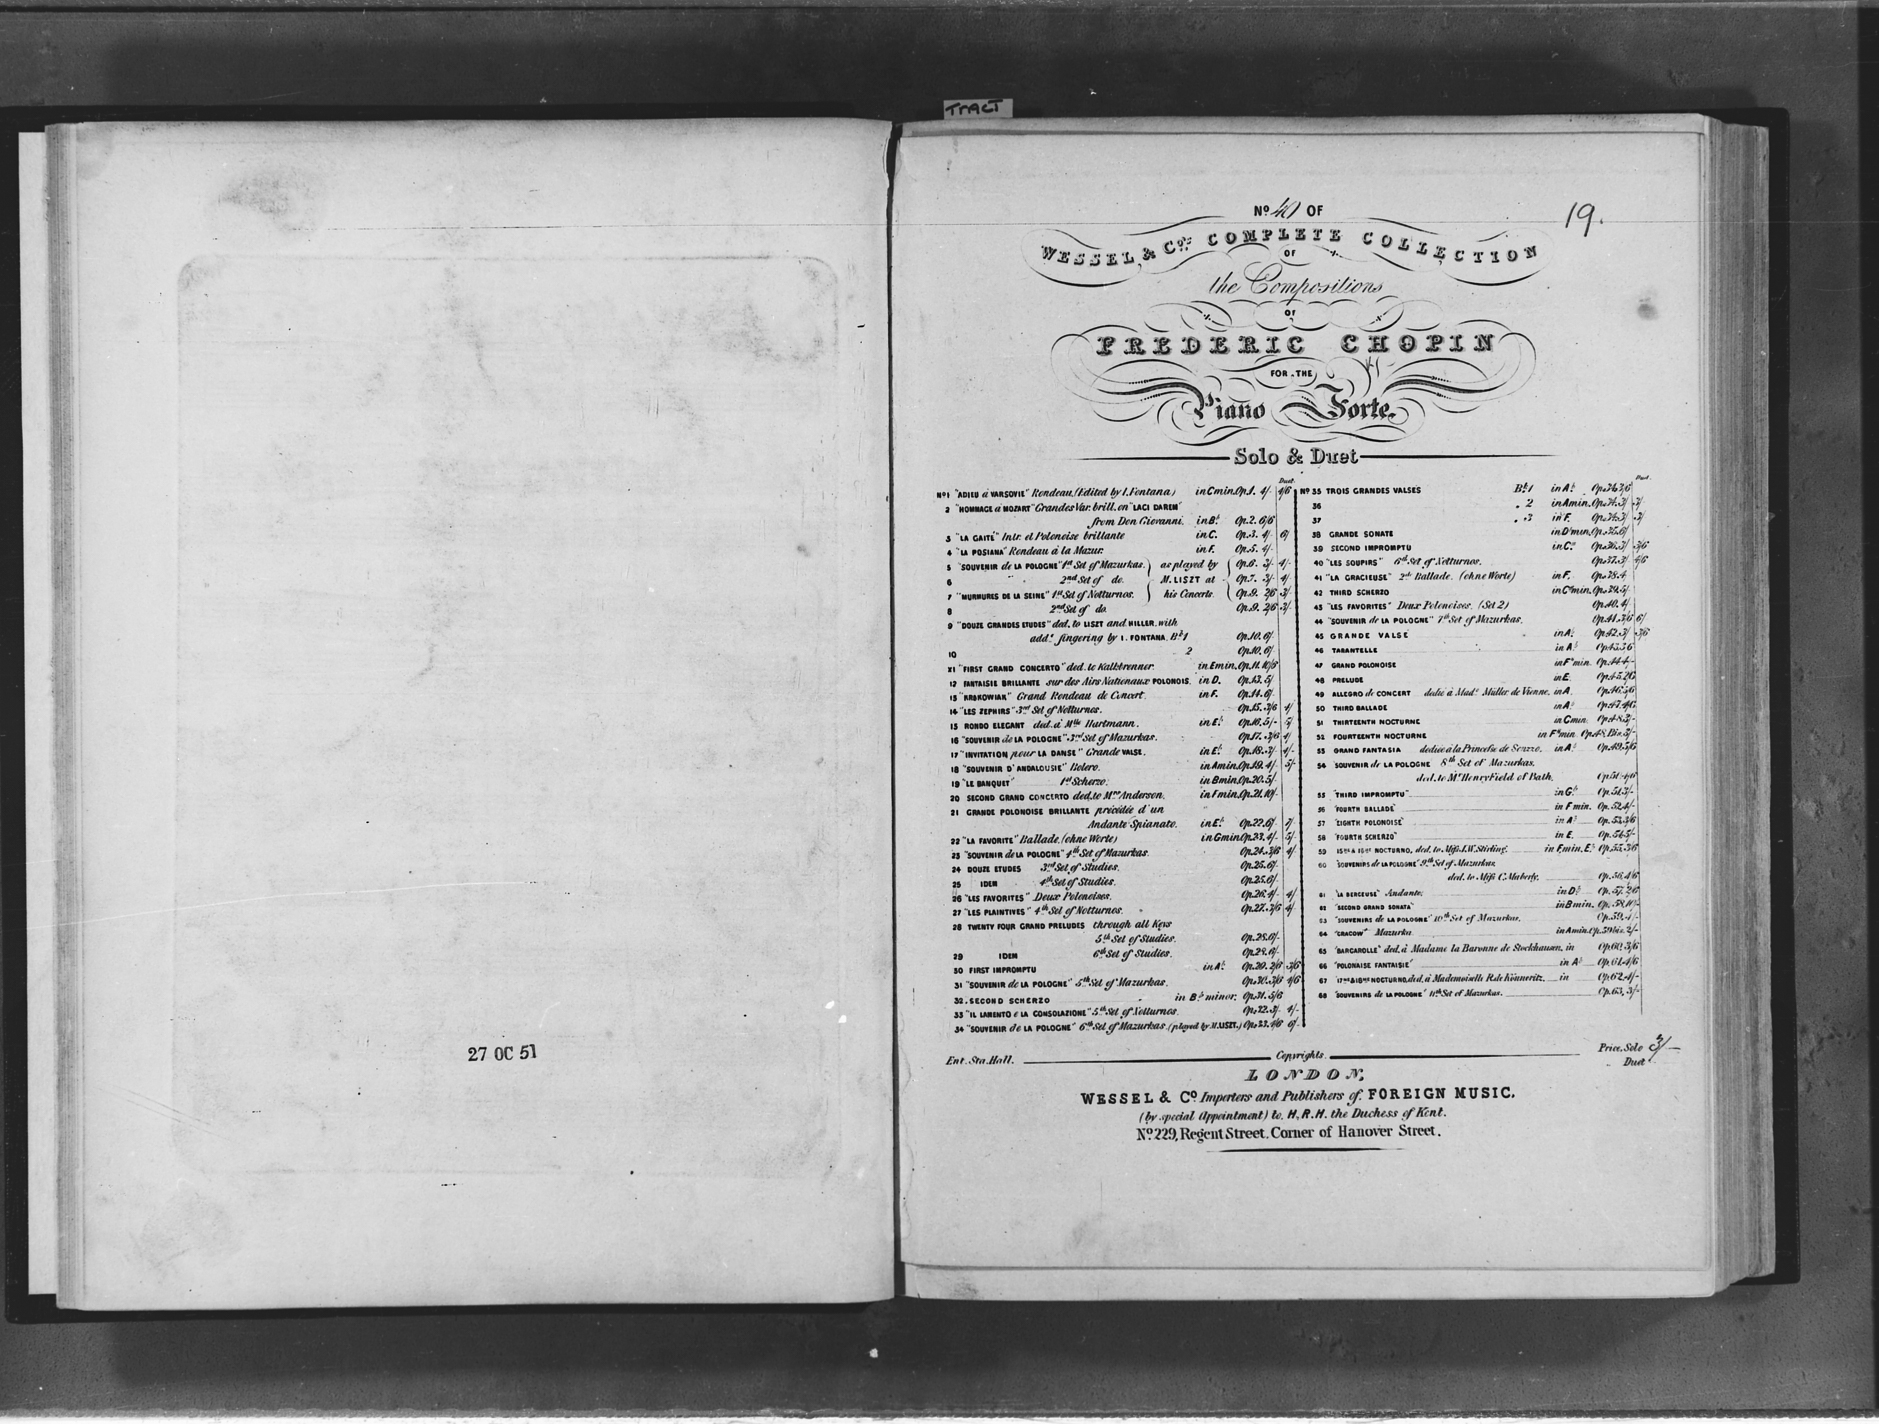 TRACT
27 OC 51
19.
Nº 40 OF
WESSEL & Cos. COMPLETE COLLECTION
OF
the Compositions
OF
FREDERIC CHOPIN
FOR THE
Piano Forte.
Solo & Duet
Duet
Nº1 "ADIEU à VARSOVIE" Rondeau, (Edited by I. Fontana) in C min. Op.1. 4/- 4/6
2 "HOMMAGE à MOZART" Grandes Var. brill. on "LACI DAREM"
from Don Giovanni. in B♭ Op.2. 6/6
3 "LA GAITÉ" Intr. et Polonoise brillante in C. Op.3. 4/- 6/
4 "LA POSIANA" Rondeau à la Mazur. in F. Op.5. 4/-
5 "SOUVENIR de LA POLOGNE" 1st Set of Mazurkas. as played by Op.6. 3/- 4/-
6 " 2nd Set of do. M. LISZT at Op.7. 3/- 4/
7 "MURMURES DE LA SEINE" 1st Set of Notturnos. his Concerts. Op.9. 2/6 3/
8 2nd Set of do. Op.9. 2/6 3/-
9 "DOUZE GRANDES ETUDES" ded. to LISZT and HILLER, with
add.l fingering by I. FONTANA. Bk 1 Op.10. 6/-
10 2 Op.10. 6/-
11 "FIRST GRAND CONCERTO" ded. to Kalkbrenner in E min. Op.11. 10/6
12 FANTAISIE BRILLANTE sur des Airs Nationaux POLONOIS. in D. Op.13. 5/
13 "KRAKOWIAK" Grand Rondeau de Concert. in F. Op.14. 6/-
14 "LES ZEPHIRS" 3rd Set of Notturnos. Op.15. 3/6 4/
15 RONDO ELEGANT ded. à Mlle Hartmann. in E♭ Op.16. 5/- 5/
16 "SOUVENIR de LA POLOGNE" 3rd Set of Mazurkas. Op.17. 3/6 4/
17 "INVITATION pour LA DANSE" Grande VALSE. in E♭ Op.18. 3/- 4/-
18 "SOUVENIR D'ANDALOUSIE" Bolero. in A min. Op.19. 4/- 5/-
19 "LE BANQUET" 1st Scherzo. in B min. Op.20. 5/-
20 SECOND GRAND CONCERTO ded. to Mrs Anderson. in F min. Op.21. 10/-
21 GRANDE POLONOISE BRILLANTE précédée d'un
Andante Spianato. in E♭ Op.22. 6/ 7/
22 "LA FAVORITE" Ballade, (ohne Worte) in G min Op.23. 4/- 5/-
23 "SOUVENIR de LA POLOGNE" 4th Set of Mazurkas. Op.24. 3/6 4/
24 DOUZE ETUDES 3rd Set of Studies. Op.25. 6/-
25 IDEM 4th Set of Studies. Op.25. 6/
26 "LES FAVORITES" Deux Poloneises. Op.26. 4/- 4/
27 "LES PLAINTIVES" 4th Set of Notturnos. Op.27. 3/6 4/
28 TWENTY FOUR GRAND PRELUDES through all Keys
5th Set of Studies. Op.28. 6/-
29 IDEM 6th Set of Studies. Op.28. 6/-
30 FIRST IMPROMPTU in A♭ Op.29. 2/6 3/6
31 "SOUVENIR de LA POLOGNE" 5th Set of Mazurkas. Op.30. 3/6 4/6
32. SECOND SCHERZO in B♭ minor. Op.31. 5/6
33 "IL LAMENTO e LA CONSOLAZIONE" 5th Set of Notturnos. Op.32. 3/- 4/-
34 "SOUVENIR de LA POLOGNE" 6th Set of Mazurkas. (played by M. LISZT.) Op.33. 4/6 6/-
Duet.
Nº 35 TROIS GRANDES VALSES Bk 1 in A♭ Op.34. 3/6
36 " 2 in A min. Op.34. 3/ 3/
37 " 3 in F. Op.34. 3/ 3/
38 GRANDE SONATE in D♭ min. Op.35. 6/
39 SECOND IMPROMPTU in C# Op.36. 3/ 3/6
40 "LES SOUPIRS" 6th Set of Notturnos. Op.37. 3/ 4/6
41 "LA GRACIEUSE" 2de Ballade. (ohne Worte) in F. Op.38. 4
42 THIRD SCHERZO in C# min. Op.39. 5/-
43 "LES FAVORITES" Deux Polonoises. (Set 2) Op.40. 4/
44 "SOUVENIR de LA POLOGNE" 7th Set of Mazurkas. Op.41. 3/6 6/
45 GRANDE VALSE in A♭ Op.42. 3/ 3/6
46 TARANTELLE in A♭ Op.43. 3/6
47 GRAND POLONOISE in F# min. Op.44. 4/-
48 PRELUDE in E. Op.45. 2/6
49 ALLEGRO de CONCERT dedié à Made Müller de Vienne. in A Op.46. 5/6
50 THIRD BALLADE in A♭ Op.47. 4/6
51 THIRTEENTH NOCTURNE in C min. Op.48. 3/-
52 FOURTEENTH NOCTURNE in F# min. Op.48. Bis. 3/-
53 GRAND FANTASIA dediée à la Princesse de Souzzo. in A♭ Op.49. 5/6
54 SOUVENIR de LA POLOGNE 8th Set of Mazurkas.
ded. to Mr Henry Field of Bath. Op.50. 4/6
55 "THIRD IMPROMPTU" in G♭ Op.51. 3/-
56 "FOURTH BALLADE" in F min. Op.52. 4/-
57 "EIGHTH POLONOISE" in A♭ Op.53. 3/6
58 "FOURTH SCHERZO" in E Op.54. 5/-
59 15th & 16th NOCTURNO, ded. to Miss J.W. Stirling. in F min. E♭ Op.55. 3/6
60 "SOUVENIRS de LA POLOGNE" 9th Set of Mazurkas.
ded. to Miss C. Maberly. Op.56. 4/6
61 "LA BERCEUSE" Andante. in D♭ Op.57. 2/6
62 "SECOND GRAND SONATA" in B min. Op.58. 10/-
63 "SOUVENIRS de LA POLOGNE" 10th Set of Mazurkas. Op.59. 4/-
64 "CRACOW" Mazurka in A min. Op.59 bis. 2/-
65 "BARCAROLLE" ded. à Madame la Baronne de Stockhausen, in Op.60. 3/6
66 "POLONAISE FANTAISIE" in A♭ Op.61. 4/6
67 17me & 18me NOCTURNO, ded. à Mademoiselle R. de Könneritz. in Op.62. 4/-
68 "SOUVENIRS de LA POLOGNE" 11th Set of Mazurkas. Op.63. 3/-
Ent. Sta. Hall. Copyrights. Price. Solo 3/-
Duet
LONDON,
WESSEL & Co. Importers and Publishers of FOREIGN MUSIC.
(by special Appointment) to H.R.H. the Duchess of Kent.
No. 229, Regent Street. Corner of Hanover Street.